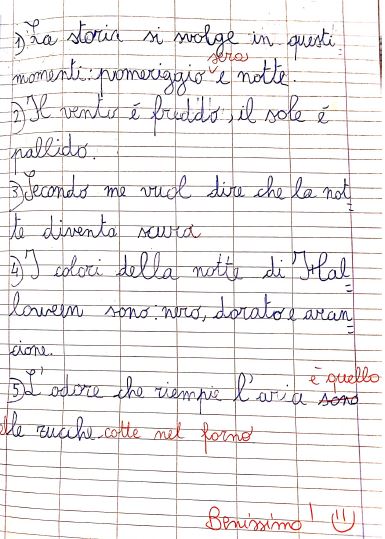 1) La storia si svolge in questi
momenti: pomeriggio sera e notte.
2) Il vento é freddo, il sole é
pallido.
3) Secondo me vuol dire che la not=
te diventa scura
4) I colori della notte di Hal=
loween sono: nero, dorato e aran=
cione.
5) L'odore che riempie l'aria sono è quello
delle zucche cotte nel forno
Benissimo!